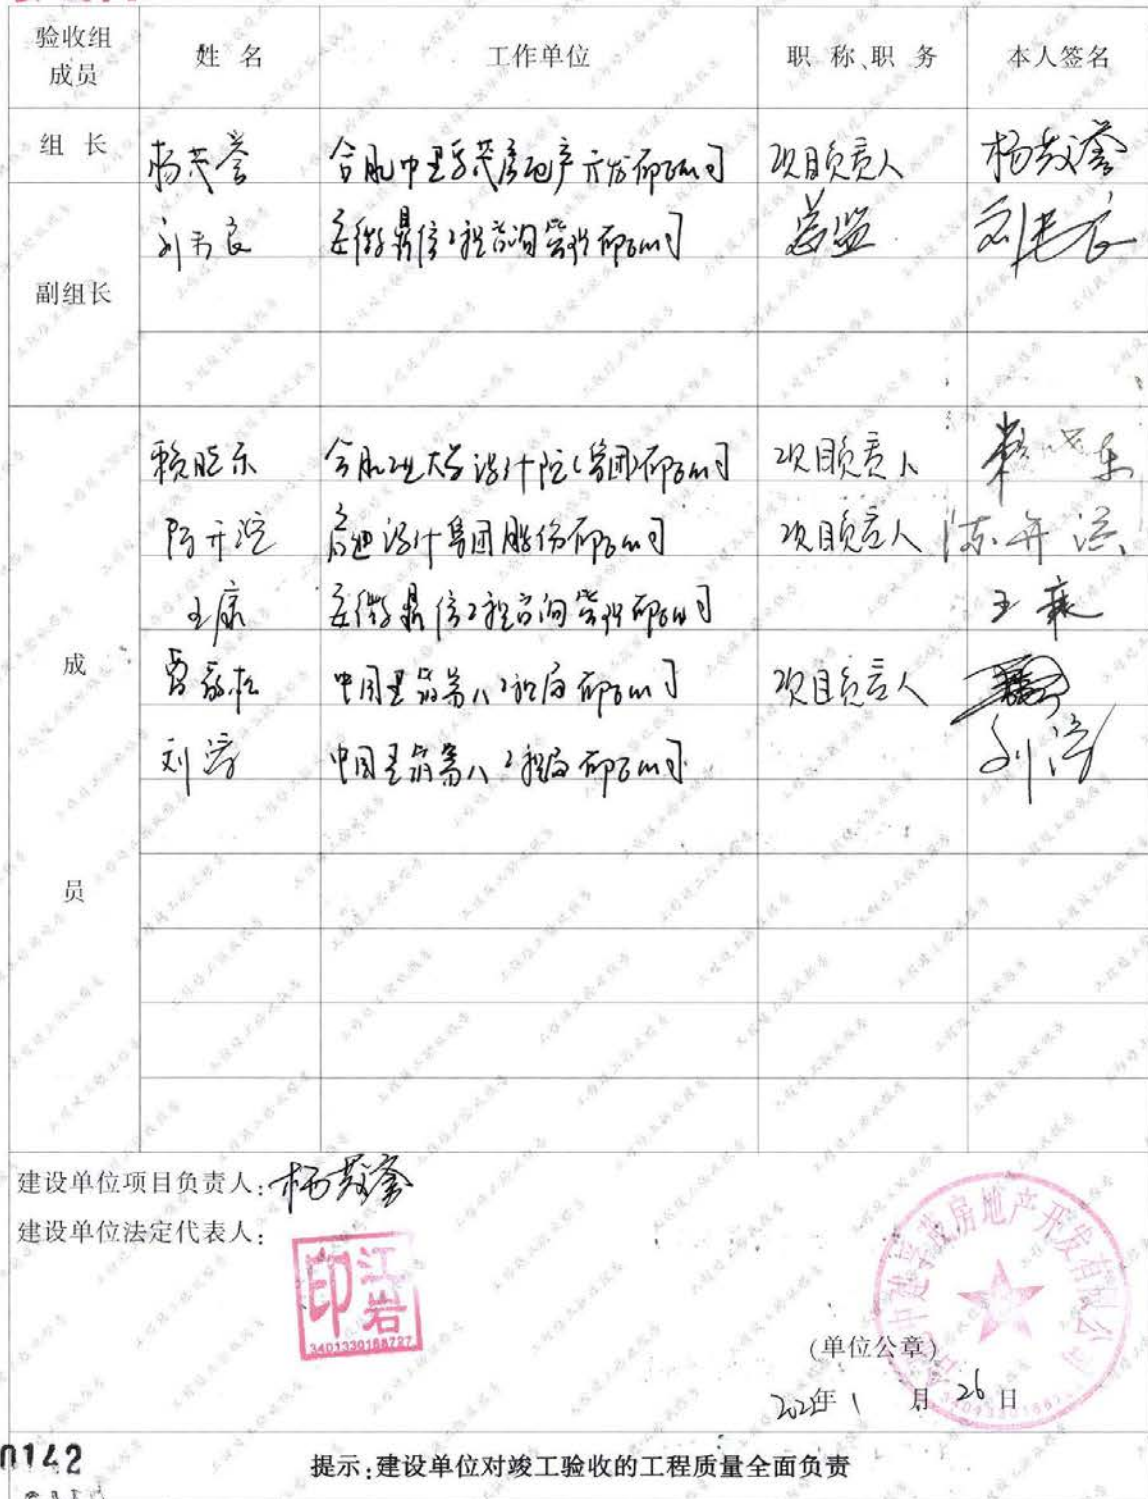 验收组成员 姓 名 工作单位 职 称、职 务 本人签名
组 长 杨茂誉 合肥中建孚茂房地产开发有限公司 项目负责人 杨茂誉
副组长 安徽鼎信工程咨询管理有限公司 总监
赖晓东 合肥工业大学设计院(集团)有限公司 项目负责人
启迪设计集团股份有限公司 项目负责人
王康 安徽鼎信工程咨询管理有限公司 王康
中国建筑第八工程局有限公司 项目负责人
刘涛 中国建筑第八工程局有限公司 刘涛
成员
建设单位项目负责人:杨茂誉
建设单位法定代表人:
江岩印
3401330188727
房地产开发有限公司
(单位公章)
年 1 月 26 日
0142
提示:建设单位对竣工验收的工程质量全面负责